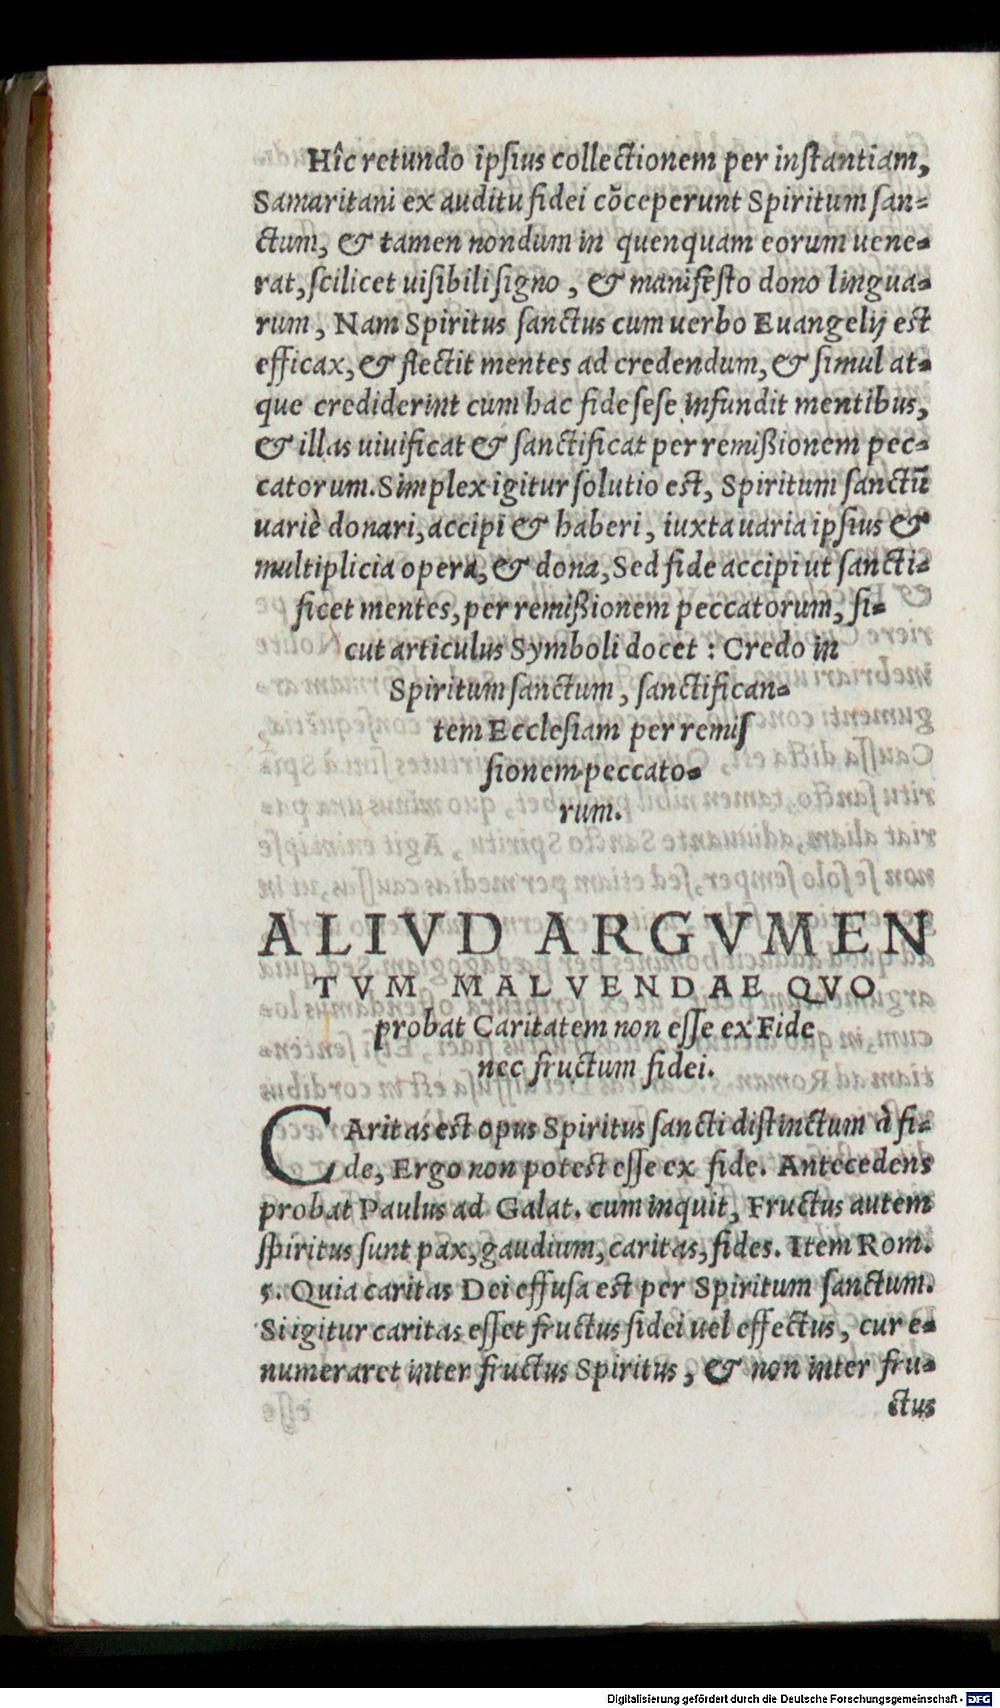 Hîc retundo ipſius collectionem per inſtantiam,
Samaritani ex auditu fidei cõceperunt Spiritum ſan-
ctum, & tamen nondum in quenquam eorum uene-
rat, ſcilicet uiſibili ſigno, & manifeſto dono lingua-
rum, Nam Spiritus ſanctus cum uerbo Euangelij eſt
efficax, & flectit mentes ad credendum, & ſimul at-
que crediderint cum hac fide ſeſe infundit mentibus,
& illas uiuificat & ſanctificat per remißionem pec-
catorum. Simplex igitur ſolutio eſt, Spiritum ſanctũ
uariè donari, accipi & haberi, iuxta uaria ipſius &
multiplicia opera, & dona, Sed fide accipi ut ſancti-
ficet mentes, per remißionem peccatorum, ſi-
cut articulus Symboli docet : Credo in
Spiritum ſanctum, ſanctifican-
tem Eccleſiam per remiſ
ſionem peccato-
rum.
ALIVD ARGVMEN
TVM MALVENDAE QVO
probat Caritatem non eſſe ex Fide
nec fructum fidei.
CAritas eſt opus Spiritus ſancti diſtinctum à fi-
de, Ergo non poteſt eſſe ex fide. Antecedens
probat Paulus ad Galat. cum inquit, Fructus autem
ſpiritus ſunt pax, gaudium, caritas, fides. Item Rom.
5. Quia caritas Dei effuſa eſt per Spiritum ſanctum.
Si igitur caritas eſſet fructus fidei uel effectus, cur e-
numeraret inter fructus Spiritus, & non inter fru-
ctus
Digitalisierung gefördert durch die Deutsche Forschungsgemeinschaft - DFG